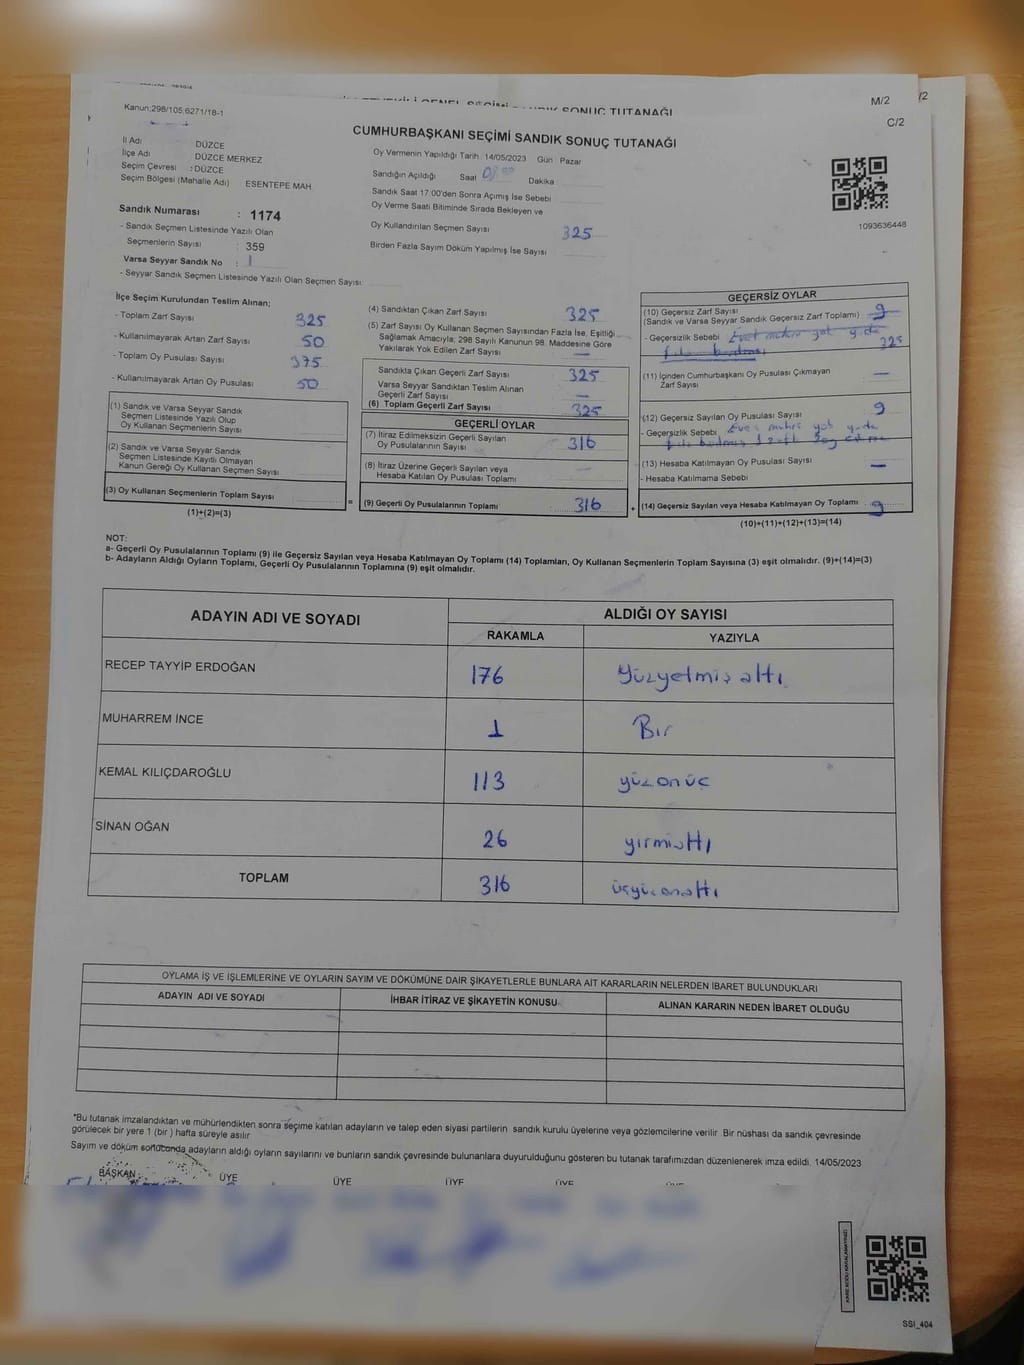 SANDIK SONUÇ TUTANAĞI
/2
M/2
C/2
Kanun:298/105,6271/18-1
CUMHURBAŞKANI SEÇİMİ SANDIK SONUÇ TUTANAĞI
İl Adı DÜZCE
İlçe Adı DÜZCE MERKEZ
Seçim Çevresi : DÜZCE
Seçim Bölgesi (Mahalle Adı) ESENTEPE MAH.
Sandık Numarası : 1174
- Sandık Seçmen Listesinde Yazılı Olan
Seçmenlerin Sayısı : 359
Varsa Seyyar Sandık No : 1
- Seyyar Sandık Seçmen Listesinde Yazılı Olan Seçmen Sayısı
Oy Vermenin Yapıldığı Tarih 14/05/2023 Gün Pazar
Sandığın Açıldığı Saat Dakika
Sandık Saat 17.00'den Sonra Açımış İse Sebebi
Oy Verme Saati Bitiminde Sırada Bekleyen ve
Oy Kullandırılan Seçmen Sayısı 325
Birden Fazla Sayım Döküm Yapılmış İse Sayısı
1093636448
İlçe Seçim Kurulundan Teslim Alınan;
- Toplam Zarf Sayısı 325
- Kullanılmayarak Artan Zarf Sayısı 50
- Toplam Oy Pusulası Sayısı 375
- Kullanılmayarak Artan Oy Pusulası 50
(1) Sandık ve Varsa Seyyar Sandık
Seçmen Listesinde Yazılı Olup
Oy Kullanan Seçmenlerin Sayısı
(2) Sandık ve Varsa Seyyar Sandık
Seçmen Listesinde Kayıtlı Olmayan
Kanun Gereği Oy Kullanan Seçmen Sayısı
(3) Oy Kullanan Seçmenlerin Toplam Sayısı
(1)+(2)=(3)
(4) Sandıktan Çıkan Zarf Sayısı 325
(5) Zarf Sayısı Oy Kullanan Seçmen Sayısından Fazla İse, Eşitliği
Sağlamak Amacıyla, 298 Sayılı Kanunun 98. Maddesine Göre
Yakılarak Yok Edilen Zarf Sayısı —
Sandıkta Çıkan Geçerli Zarf Sayısı 325
Varsa Seyyar Sandıktan Teslim Alınan
Geçerli Zarf Sayısı —
(6) Toplam Geçerli Zarf Sayısı 325
GEÇERLİ OYLAR
(7) İtiraz Edilmeksizin Geçerli Sayılan
Oy Pusulalarının Sayısı 316
(8) İtiraz Üzerine Geçerli Sayılan veya
Hesaba Katılan Oy Pusulası Toplamı —
= (9) Geçerli Oy Pusulalarının Toplamı 316 +
GEÇERSİZ OYLAR
(10) Geçersiz Zarf Sayısı 9
(Sandık ve Varsa Seyyar Sandık Geçersiz Zarf Toplamı)
- Geçersizlik Sebebi Evet mührü yok yada
325
(11) İçinden Cumhurbaşkanı Oy Pusulası Çıkmayan
Zarf Sayısı —
(12) Geçersiz Sayılan Oy Pusulası Sayısı 9
- Geçersizlik Sebebi Evet mührü yok yada
(13) Hesaba Katılmayan Oy Pusulası Sayısı —
- Hesaba Katılmama Sebebi
(14) Geçersiz Sayılan veya Hesaba Katılmayan Oy Toplamı 9
(10)+(11)+(12)+(13)=(14)
NOT:
a- Geçerli Oy Pusulalarının Toplamı (9) ile Geçersiz Sayılan veya Hesaba Katılmayan Oy Toplamı (14) Toplamları, Oy Kullanan Seçmenlerin Toplam Sayısına (3) eşit olmalıdır. (9)+(14)=(3)
b- Adayların Aldığı Oyların Toplamı, Geçerli Oy Pusulalarının Toplamına (9) eşit olmalıdır.
ADAYIN ADI VE SOYADI ALDIĞI OY SAYISI
RAKAMLA YAZIYLA
RECEP TAYYİP ERDOĞAN 176 Yüzyetmişaltı
MUHARREM İNCE 1 Bir
KEMAL KILIÇDAROĞLU 113 yüzonüç
SİNAN OĞAN 26 yirmialtı
TOPLAM 316 üçyüzonaltı
OYLAMA İŞ VE İŞLEMLERİNE VE OYLARIN SAYIM VE DÖKÜMÜNE DAİR ŞİKAYETLERLE BUNLARA AİT KARARLARIN NELERDEN İBARET BULUNDUKLARI
ADAYIN ADI VE SOYADI İHBAR İTİRAZ VE ŞİKAYETİN KONUSU ALINAN KARARIN NEDEN İBARET OLDUĞU
*Bu tutanak imzalandıktan ve mühürlendikten sonra seçime katılan adayların ve talep eden siyasi partilerin sandık kurulu üyelerine veya gözlemcilerine verilir. Bir nüshası da sandık çevresinde
görülecek bir yere 1 (bir) hafta süreyle asılır
Sayım ve döküm sonucunda adayların aldığı oyların sayılarını ve bunların sandık çevresinde bulunanlara duyurulduğunu gösteren bu tutanak tarafımızdan düzenlenerek imza edildi. 14/05/2023
BAŞKAN ÜYE ÜYE ÜYE ÜYE
SSI_404